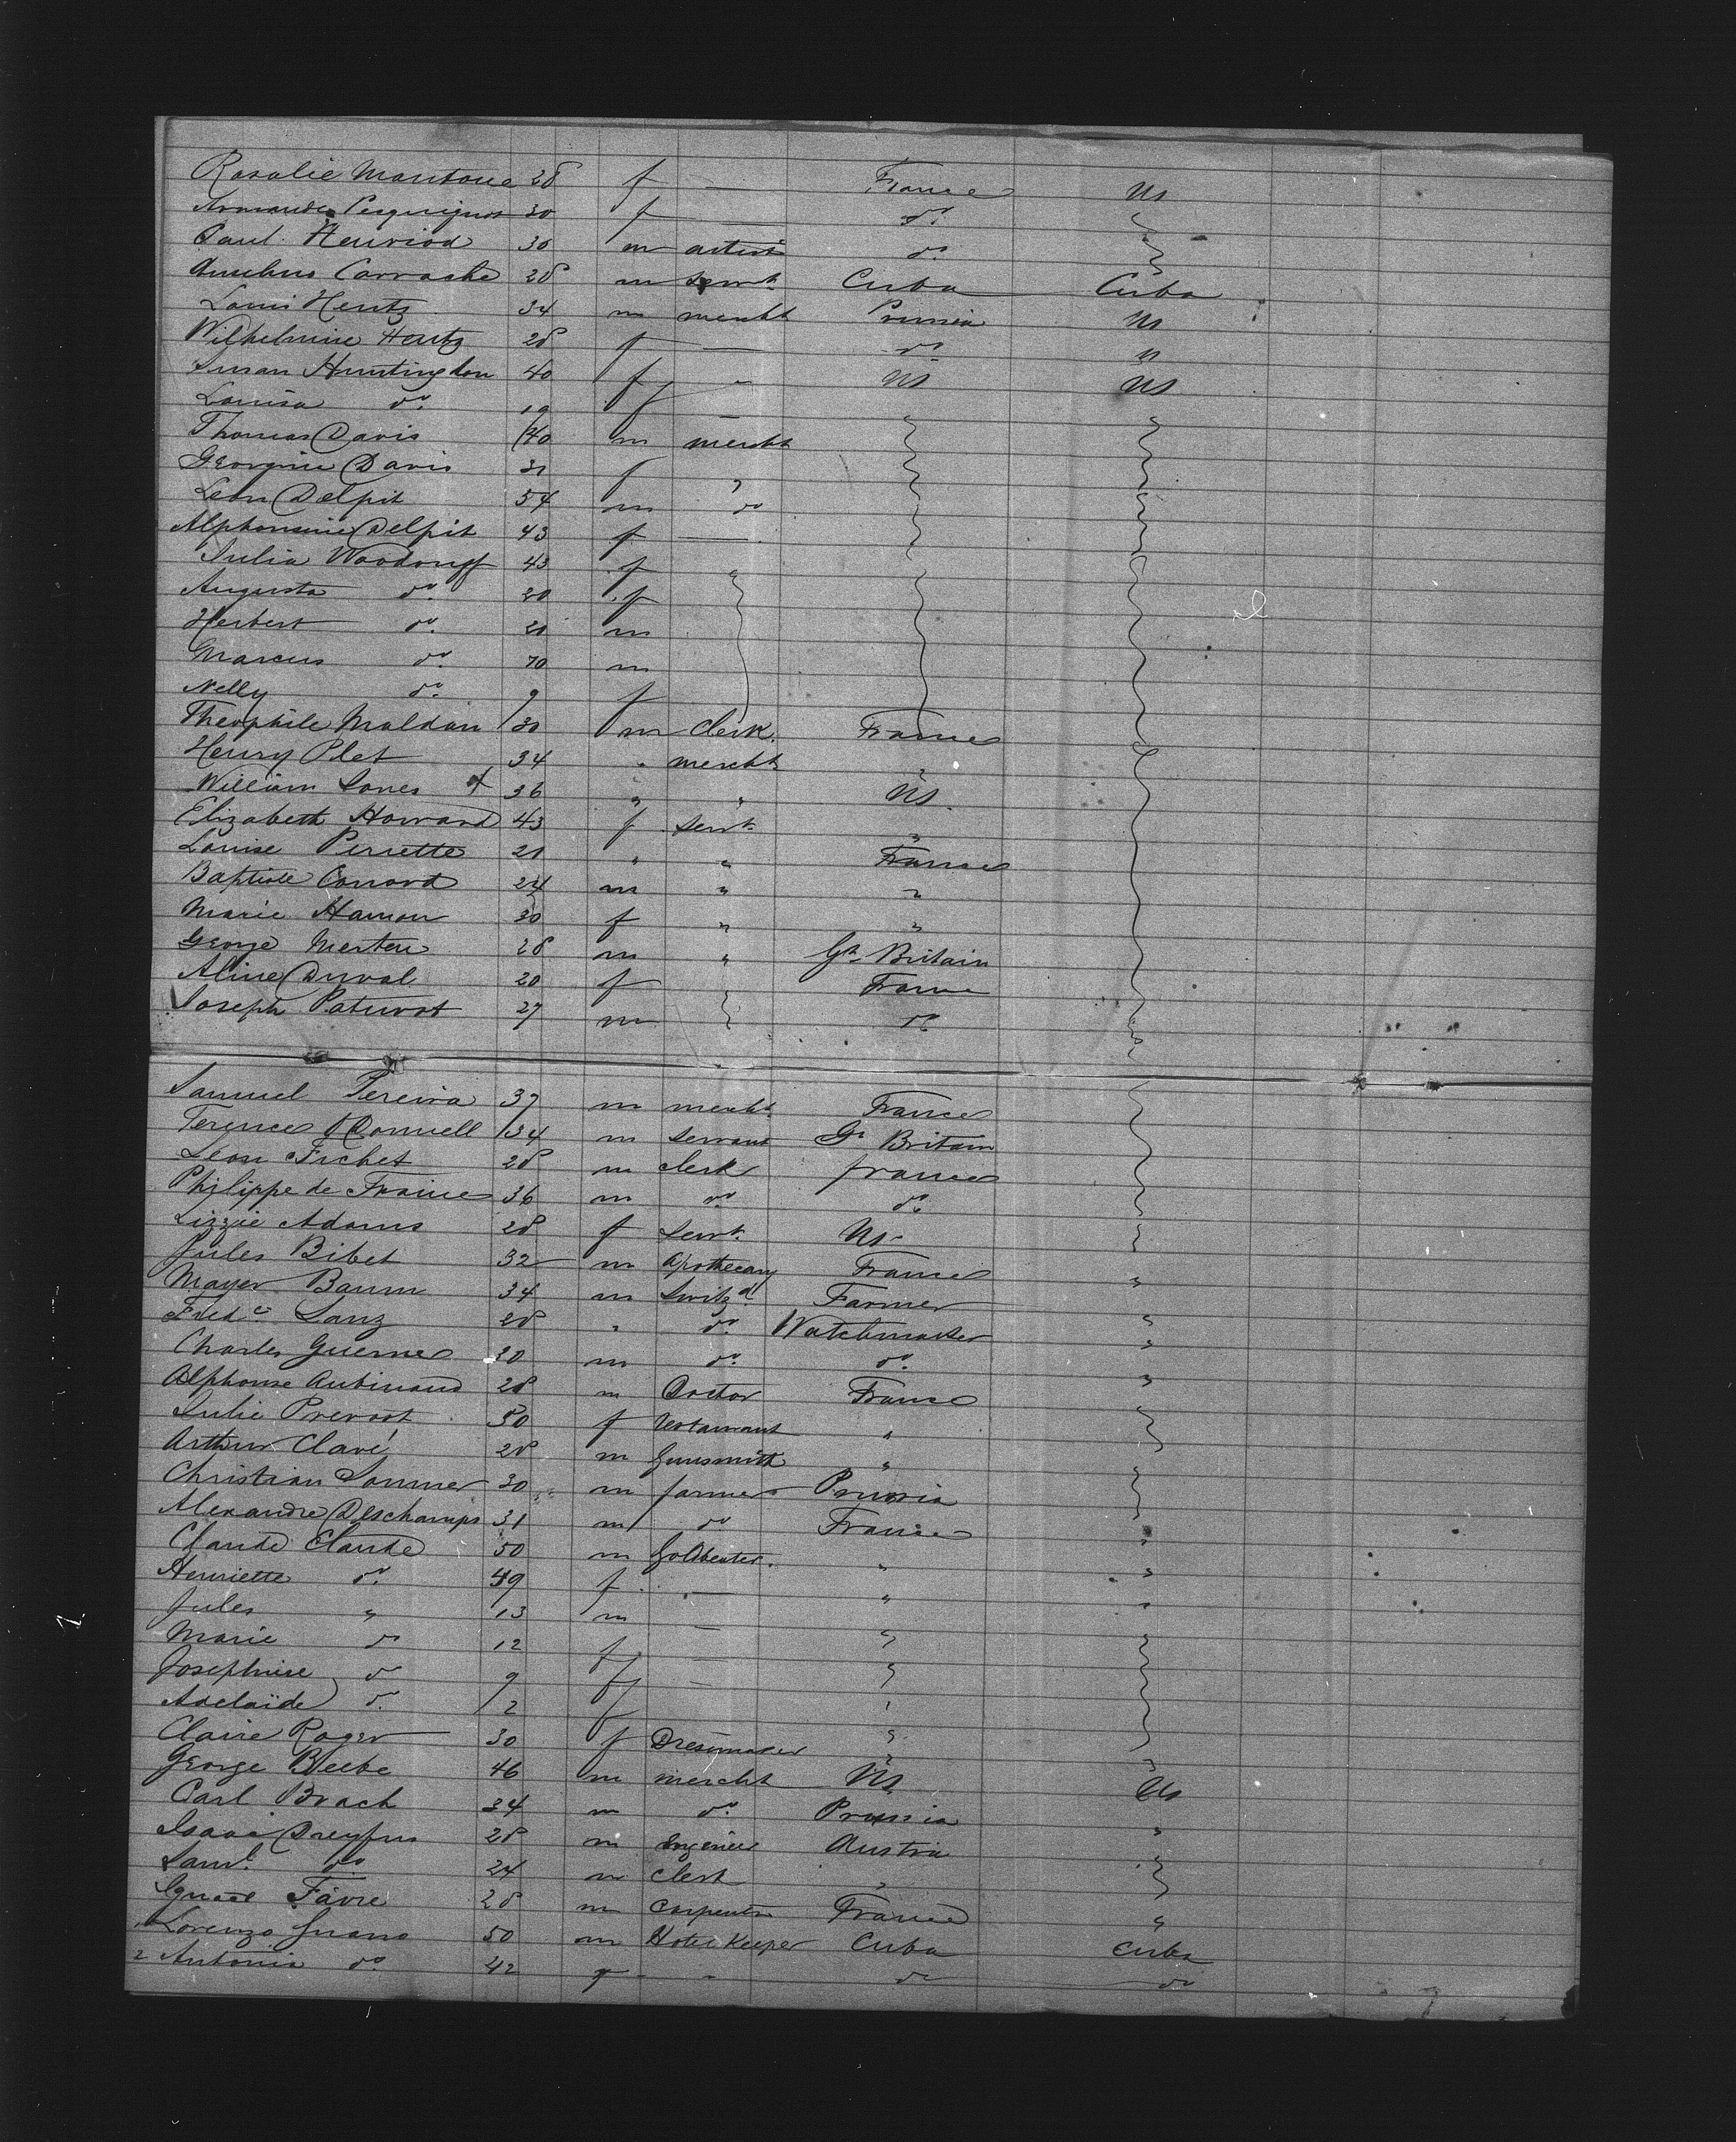 Rosalie Montoue 28 f — France US
Armandes Pesquignot 30 f do.
Paul Henriod 30 m artist do.
Carraske 28 m servt. Cuba Cuba
Louis Hentz 34 m mercht Prussia US
Wilhelmine Hentz 28 f — do. "
Susan Huntingdon 40 f " US US
Louisa do. 19 f —
Thomas Davis 40 m mercht
Georgine Davis 31 f "
Leon Delpit 54 m do
Alphonsine Delpit 43 f —
Julia Woodruff 43 f "
Augusta do. 20 f
Herbert do. 21 m
Marcus do. 70 m
Nelly do. 9 f
Theophile Maldan 30 m Clerk. France
Henry Plet 34 " mercht "
William Jones x 36 " " US.
Elizabeth Howard 43 f servt. "
Louise Perrette 21 " " France
Baptiste Conord 24 m " "
Marie Hamon 30 f " "
George Merten 28 m " Gt. Britain
Aline Duval 20 f France
Joseph Paturot 27 m do
Samuel Pereira 37 m mercht. France
Terence O'Donnell 34 m servant Gt Britain
Leon Fichet 28 m clerk france
Philippe de Fraine 36 m do. do.
Lizzie Adams 28 f Servt. US
Jules Bibet 32 m Apothecary France
Mayer Baum 34 m Switzd. Farmer "
Fredc Lanz 28 " do. Watchmaker "
Charles Guerne 30 m do. do. "
Alphonse Aubinaud 28 m Doctor France "
Julie Prevost 50 f restaurant "
Arthur Clavé 28 m Gunsmith "
Christian Sommer 30 m farmer Prussia
Alexandre Deschamps 31 m do France
Claude Claude 50 m Goldbeater. " "
Henriette do. 49 f — " "
Jules " 13 m — " "
Marie do 12 f — "
Josephine do 9 f — "
Adelaïde do. 2 f "
Claire Roger 30 f Dressmaker "
George Beebe 46 m mercht US US
Carl Brach 34 m do. Prussia "
Isaac Dreyfus 28 m Engineer Austria
Saml. do. 24 m Clerk "
Ignace Favre 28 m Carpenter France "
1 Lorenzo Juano 50 m Hotel Keeper Cuba Cuba
2 Antonia do. 42 f " do do